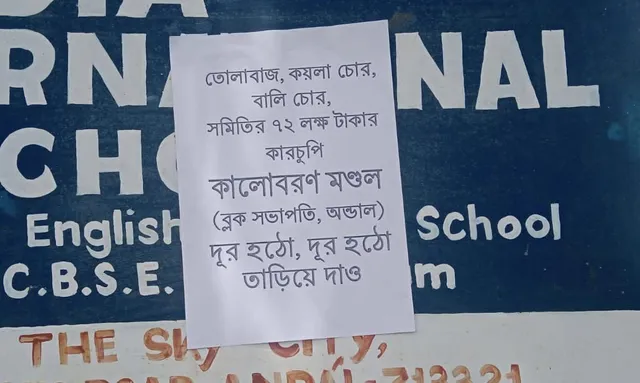 DIA
RNA NAL
CHO
তোলাবাজ, কয়লা চোর,
বালি চোর,
সমিতির ৭২ লক্ষ টাকার
কারচুপি
কালোবরণ মণ্ডল
(ব্লক সভাপতি, অন্ডাল)
দূর হঠো, দূর হঠো
তাড়িয়ে দাও
English School
C.B.S.E. m
THE SKY CITY,